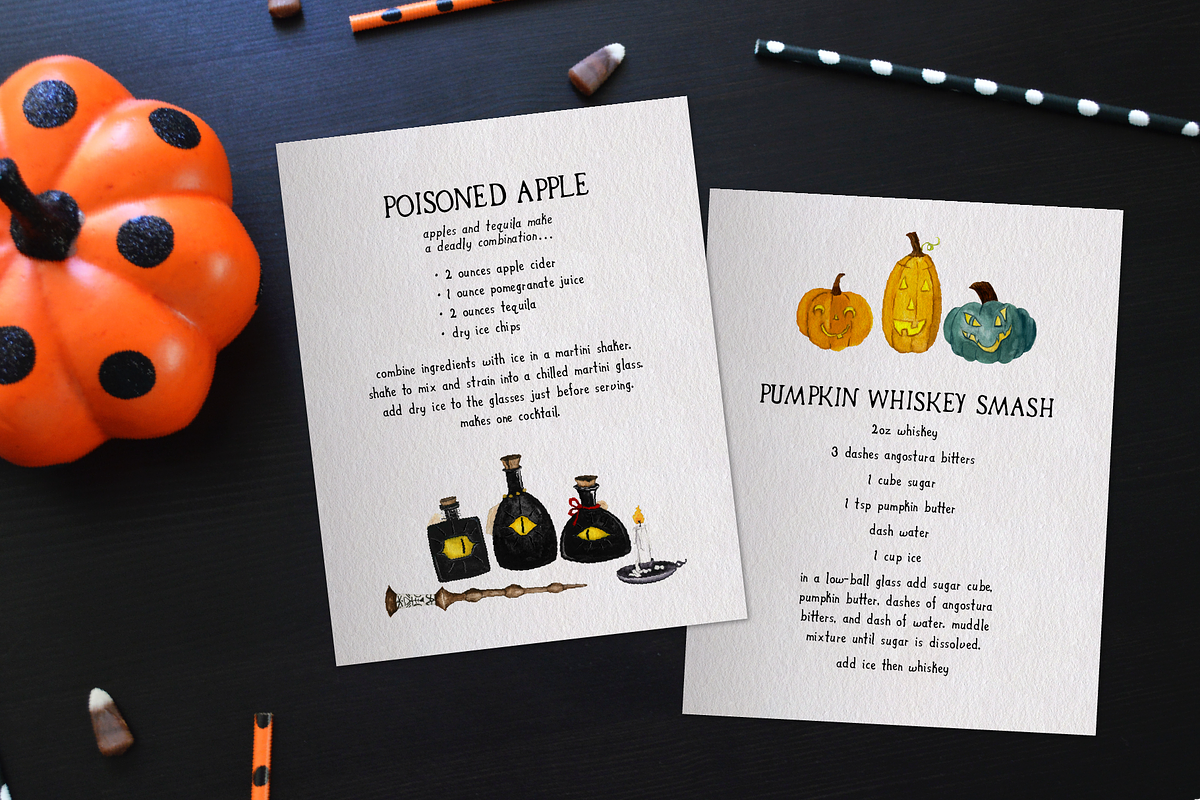 POISONED APPLE
apples and tequila make
a deadly combination...
• 2 ounces apple cider
• 1 ounce pomegranate juice
• 2 ounces tequila
• dry ice chips
combine ingredients with ice in a martini shaker.
shake to mix and strain into a chilled martini glass.
add dry ice to the glasses just before serving.
makes one cocktail.
PUMPKIN WHISKEY SMASH
2oz whiskey
3 dashes angostura bitters
1 cube sugar
1 tsp pumpkin butter
dash water
1 cup ice
in a low-ball glass add sugar cube,
pumpkin butter, dashes of angostura
bitters, and dash of water. muddle
mixture until sugar is dissolved.
add ice then whiskey